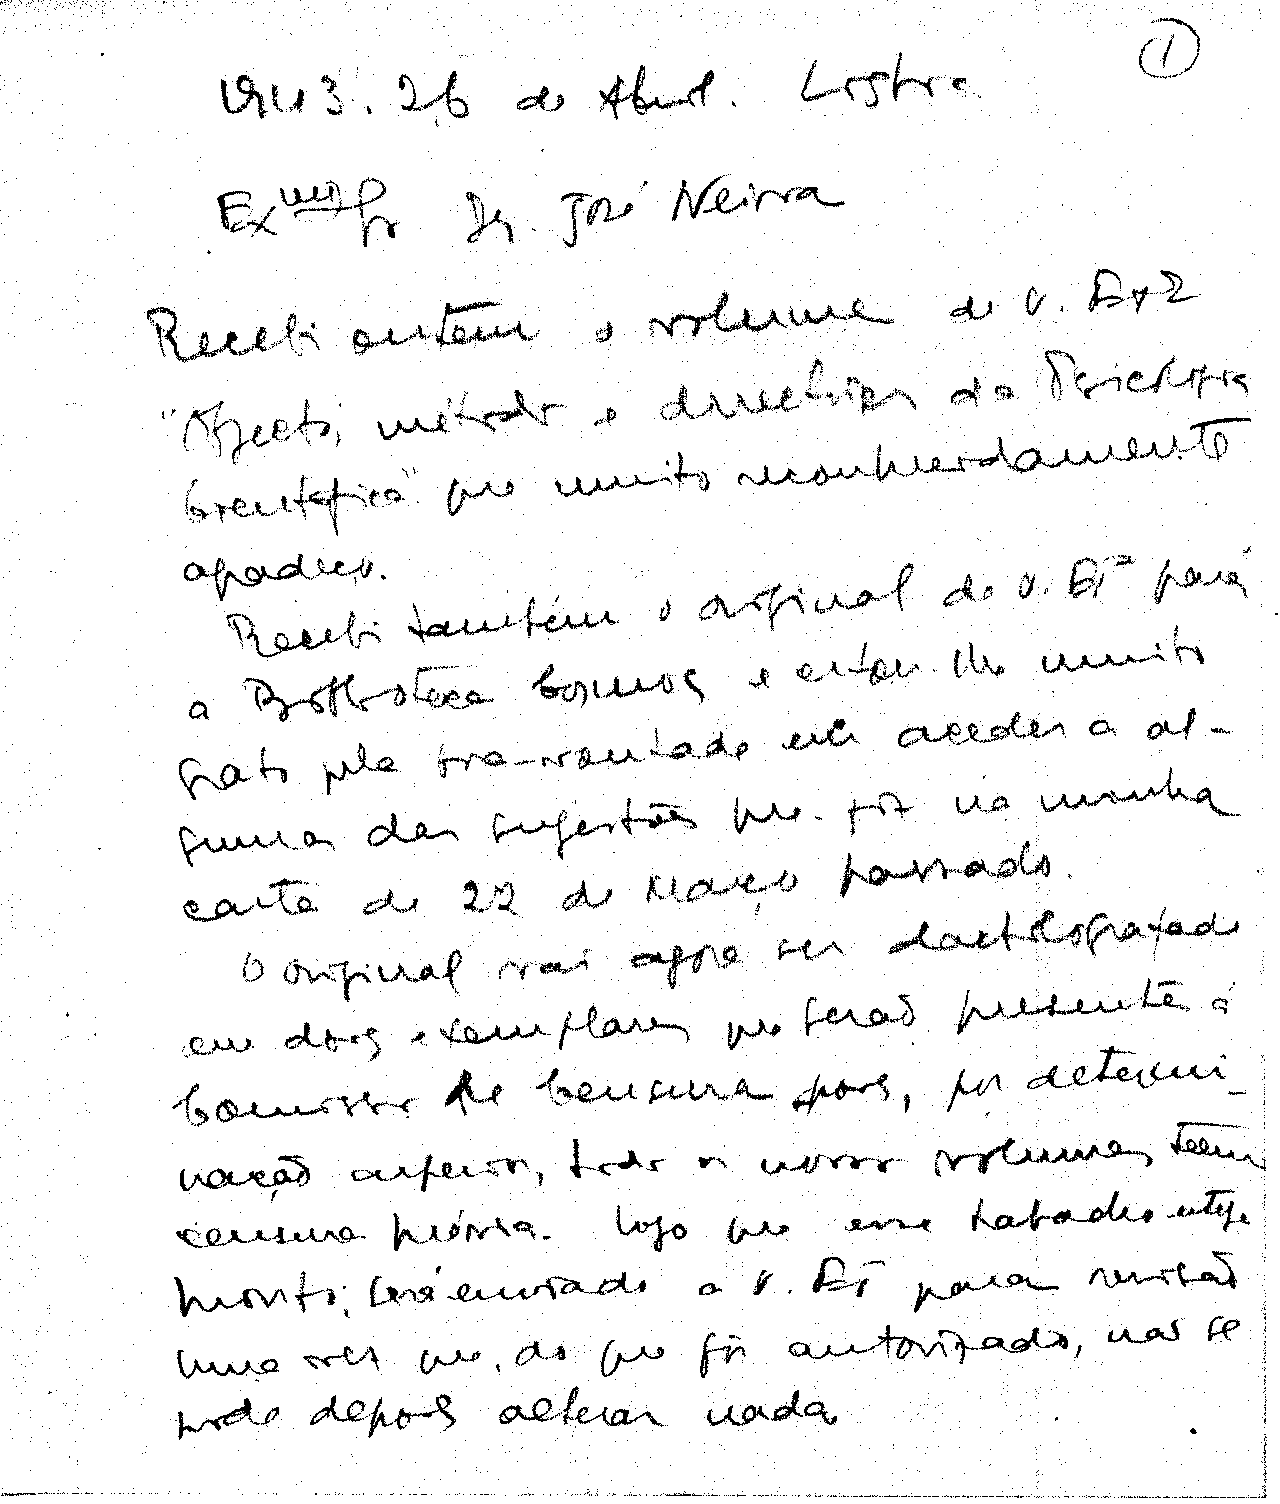 1
1943. 26 de Abril. Lisboa
Exmo Sr Dr. José Neiva
Recebi ontem o volume de V. Exª
"Objecto, método e directrizes da Psicologia
Científica" que muito reconhecidamente
agradeço.
Recebi também o original de V. Exª para
a Biblioteca Cosmos e estou-lhe muito
grato pela boa-vontade em aceder a al-
gumas das sugestões que fiz na minha
carta de 22 de Março passado.
O original vai agora ser dactilografado
em dois exemplares que serão presentes à
Comissão de Censura pois, por determi-
nação superior, todos os novos volumes têem
censura prévia. Logo que esse trabalho esteja
pronto, será enviado a V. Exª para revisão
uma vez que, do que fôr autorizado, não se
pode depois alterar nada